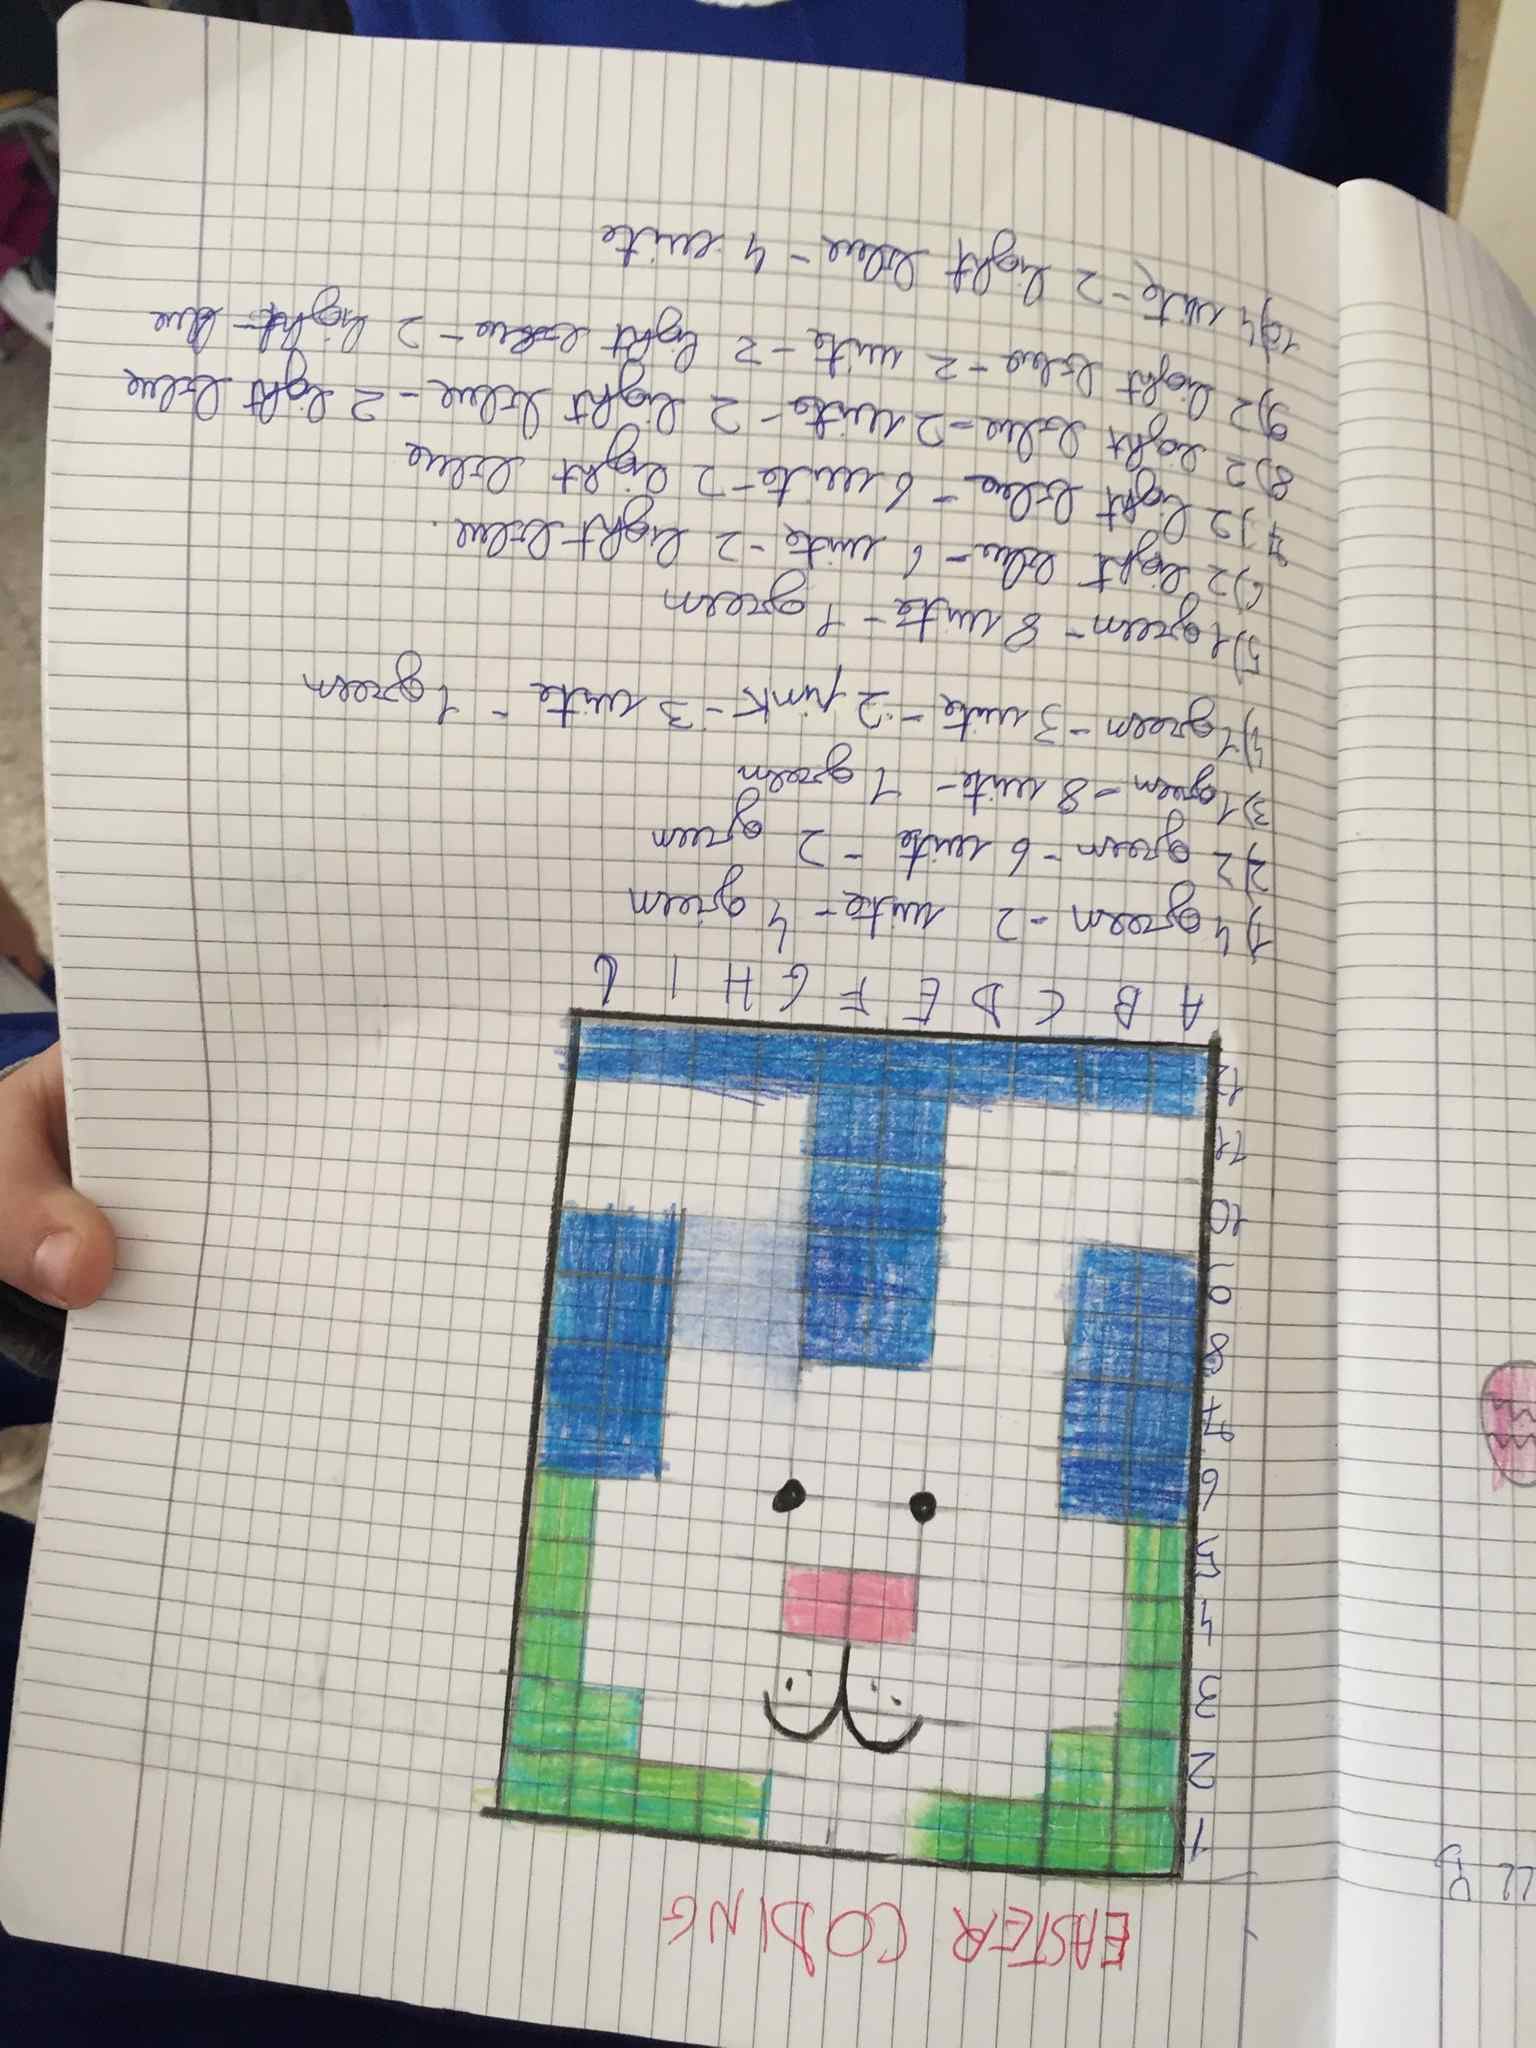 EASTER CODING
1
2
3
4
5
6
7
8
9
10
11
12
A B C D E F G H I L
1) 4 green - 2 wite - 4 green
2) 2 green - 6 wite - 2 green
3) 1 green - 8 wite - 1 green
4) 1 green - 3 wite - 2 pink - 3 wite - 1 green
5) 1 green - 8 wite - 1 green
6) 2 light blue - 6 wite - 2 light blue.
7) 2 light blue - 6 wite - 2 light blue
8) 2 light blue - 2 wite - 2 light blue - 2 light blue
9) 2 light blue - 2 wite - 2 light blue - 2 light blue
10) 4 wite - 2 light blue - 4 wite